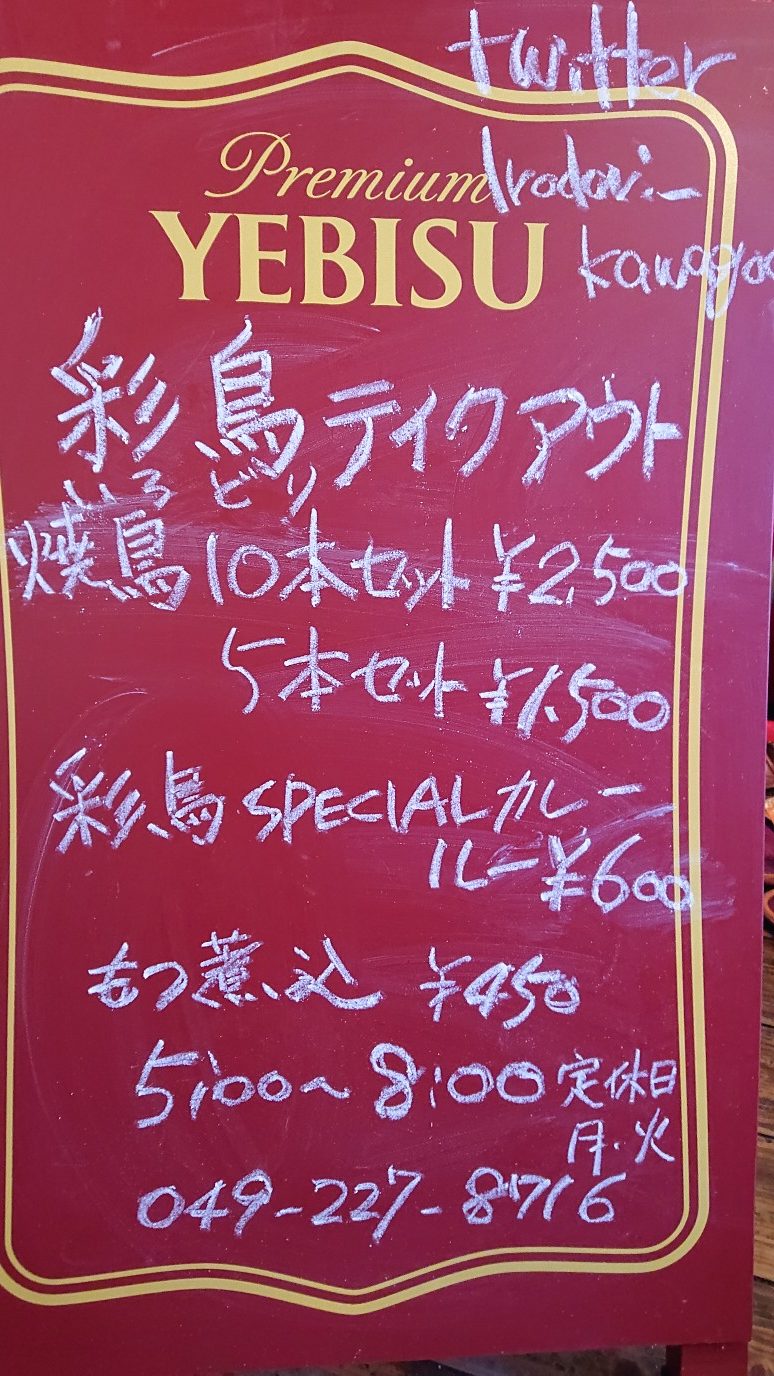 twitter
Premium Irodori_
YEBISU kawagoe
彩鳥テイクアウト
いろどり
焼鳥10本セット ¥2,500
5本セット ¥1,500
彩鳥 SPECIALカレー
ルー¥600
もつ煮込 ¥450
5:00〜8:00 定休日
月・火
049-227-8716